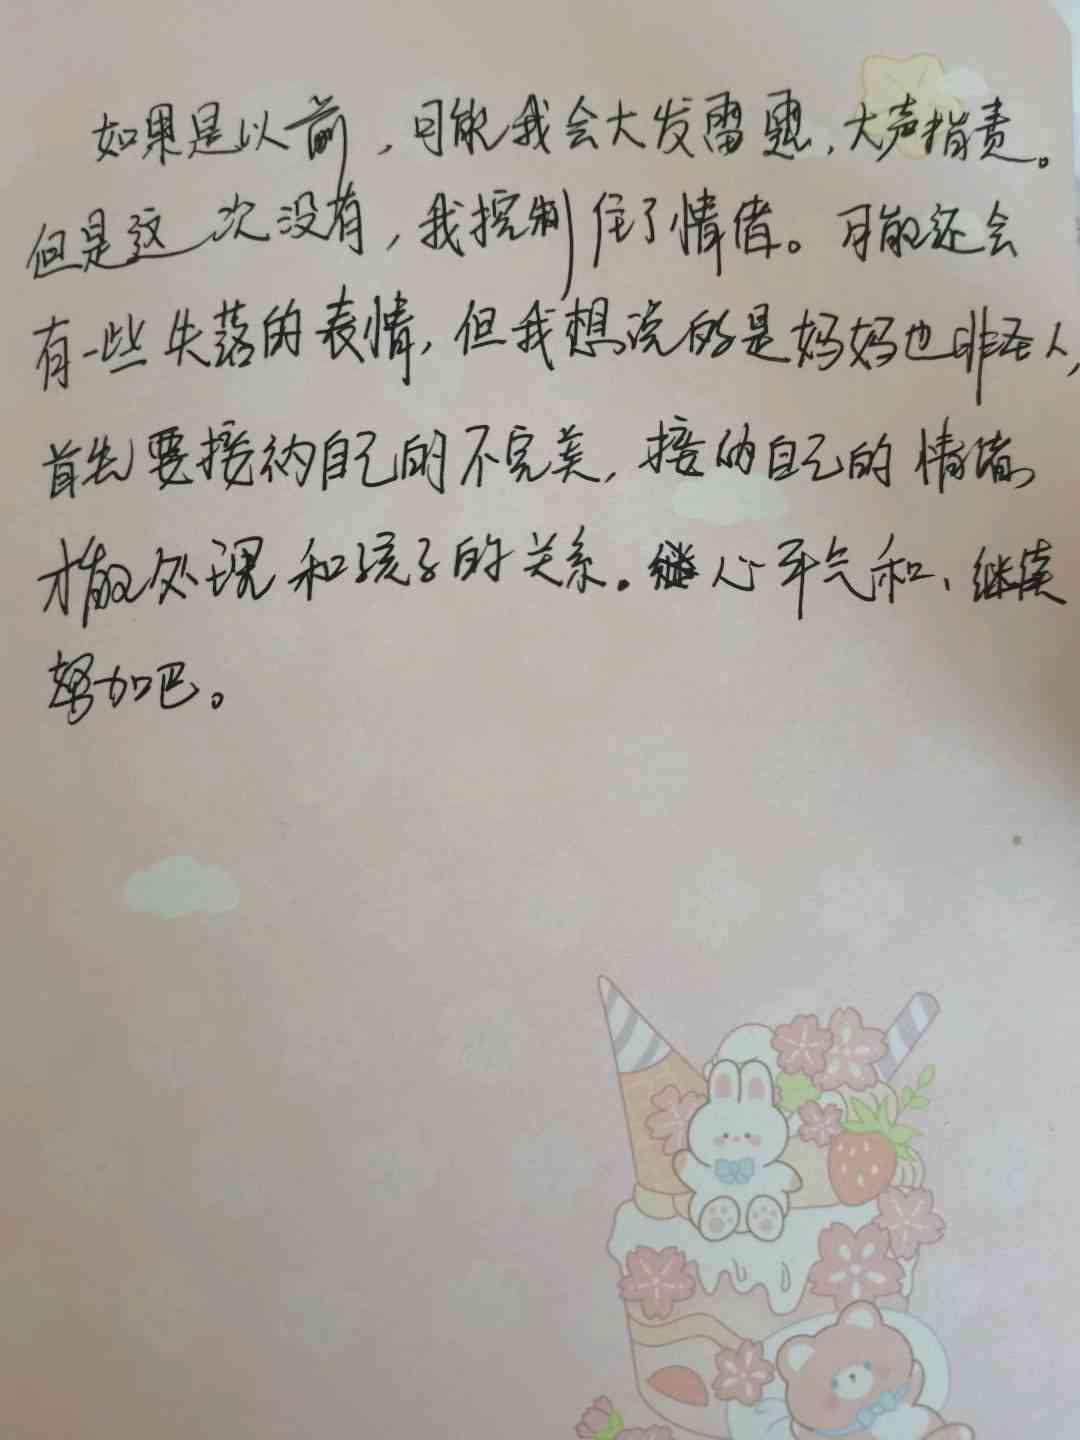 如果是以前，可能我会大发雷霆，大声指责。
但是这一次没有，我控制住了情绪。可能还会
有一些失落的表情，但我想说的是妈妈也非圣人，
首先要接纳自己的不完美，接纳自己的情绪，
才能处理和孩子的关系。心平气和、继续
努力吧。